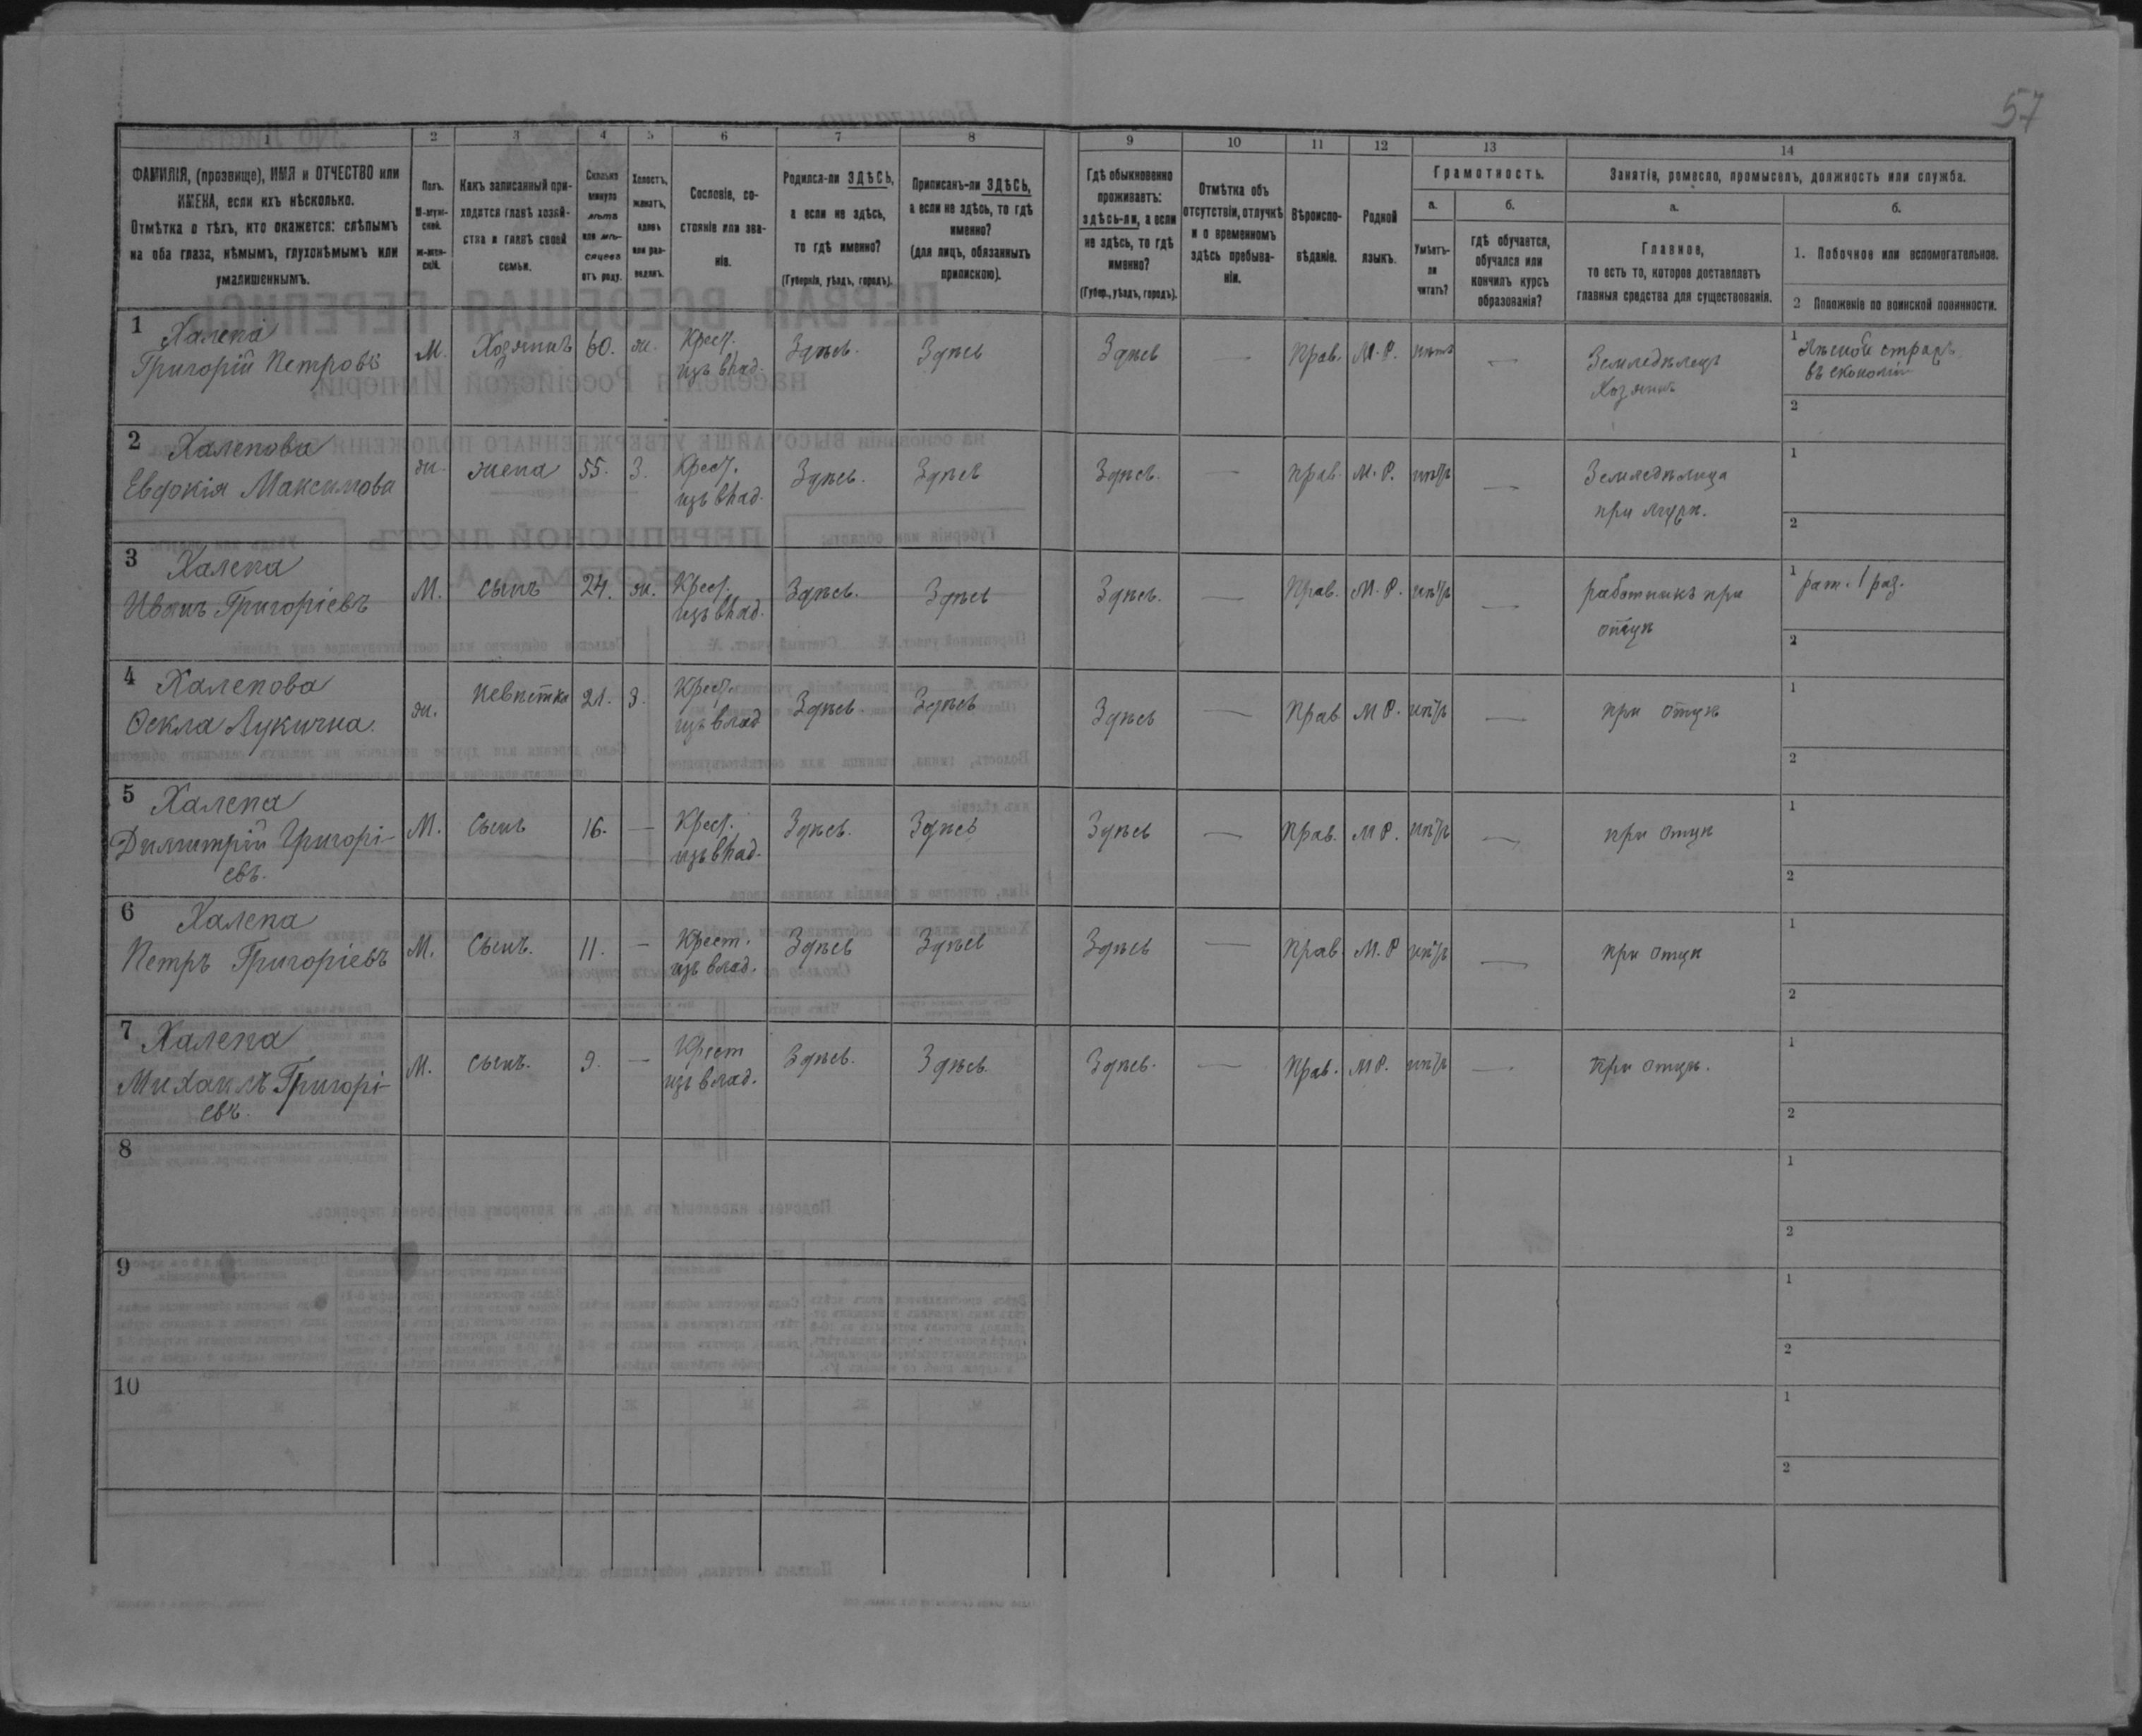 57
1
2
3
4
5
6
7
8
9
10
11
12
13
14
ФАМИЛІЯ, (прозвище), ИМЯ и ОТЧЕСТВО или
ИМЕНА, если ихъ нѣсколько.
Отмѣтка о тѣхъ, кто окажется: слѣпымъ
на оба глаза, нѣмымъ, глухонѣмымъ или
умалишеннымъ.
Полъ.
М-муж-
ской.
ж-жен-
скій.
Какъ записанный при-
ходится главѣ хозяй-
ства и главѣ своей
семьи.
Сколько
минуло
лѣтъ
или мѣ-
сяцевъ
отъ роду.
Холостъ,
женатъ,
вдовъ
или раз-
веденъ.
Сословіе, со-
стояніе или зва-
ніе.
Родился-ли ЗДѢСЬ,
а если не здѣсь,
то гдѣ именно?
(Губернія, уѣздъ, городъ).
Приписанъ-ли ЗДѢСЬ,
а если не здѣсь, то гдѣ
именно?
(для лицъ, обязанныхъ
припискою).
Гдѣ обыкновенно
проживаетъ:
здѣсь-ли, а если
не здѣсь, то гдѣ
именно?
(Губер., уѣздъ, городъ).
Отмѣтка объ
отсутствіи, отлучкѣ
и о временномъ
здѣсь пребыва-
ніи.
Вѣроиспо-
вѣданіе.
Родной
языкъ.
Грамотность.
а.
б.
Умѣетъ-
ли
читать?
гдѣ обучается,
обучался или
кончилъ курсъ
образованія?
Занятіе, ремесло, промыселъ, должность или служба.
а.
б.
Главное,
то есть то, которое доставляетъ
главныя средства для существованія.
1. Побочное или вспомогательное.
2 Положеніе по воинской повинности.
1 Халепа
Григорій Петровъ
М. Хозяинъ 60. ж. Крест. Здѣсь. Здѣсь Здѣсь — Прав. М. Р. нѣтъ — Земледѣлецъ
изъ влад. Хозяинъ
1 Лѣсной стражъ
въ економіи
2
2 Халепова
Евдокія Максимова
ж. жена 55. З. Крест. Здѣсь. Здѣсь Здѣсь. — прав. М. Р. нѣтъ — Земледѣлица
изъ влад. при мужѣ.
1
2
3 Халепа
Иванъ Григоріевъ
М. сынъ 24. ж. Крест. Здѣсь. Здѣсь Здѣсь. — Прав. М. Р. нѣтъ — работникъ при
изъ влад. отцѣ
1 рат. 1 раз.
2
4 Халепова
Ѳекла Лукична.
ж. невѣстка 21. З. Крест. Здѣсь. Здѣсь Здѣсь — Прав М Р. нѣтъ — при отцѣ
изъ влад
1
2
5 Халепа
Димитрій Григорі-
евъ.
М. Сынъ 16. — Крест. Здѣсь. Здѣсь Здѣсь — Прав. М Р. нѣтъ — при отцѣ
изъ влад.
1
2
6 Халепа
Петръ Григоріевъ
М. Сынъ. 11. — Крест. Здѣсь Здѣсь Здѣсь — Прав. М. Р нѣтъ — при отцѣ
изъ влад.
1
2
7 Халепа
Михаилъ Григорі-
евъ.
М. сынъ. 9. — Крест Здѣсь. Здѣсь Здѣсь. — Прав. М Р. нѣтъ — при отцѣ.
изъ влад.
1
2
8
1
2
9
1
2
10
1
2